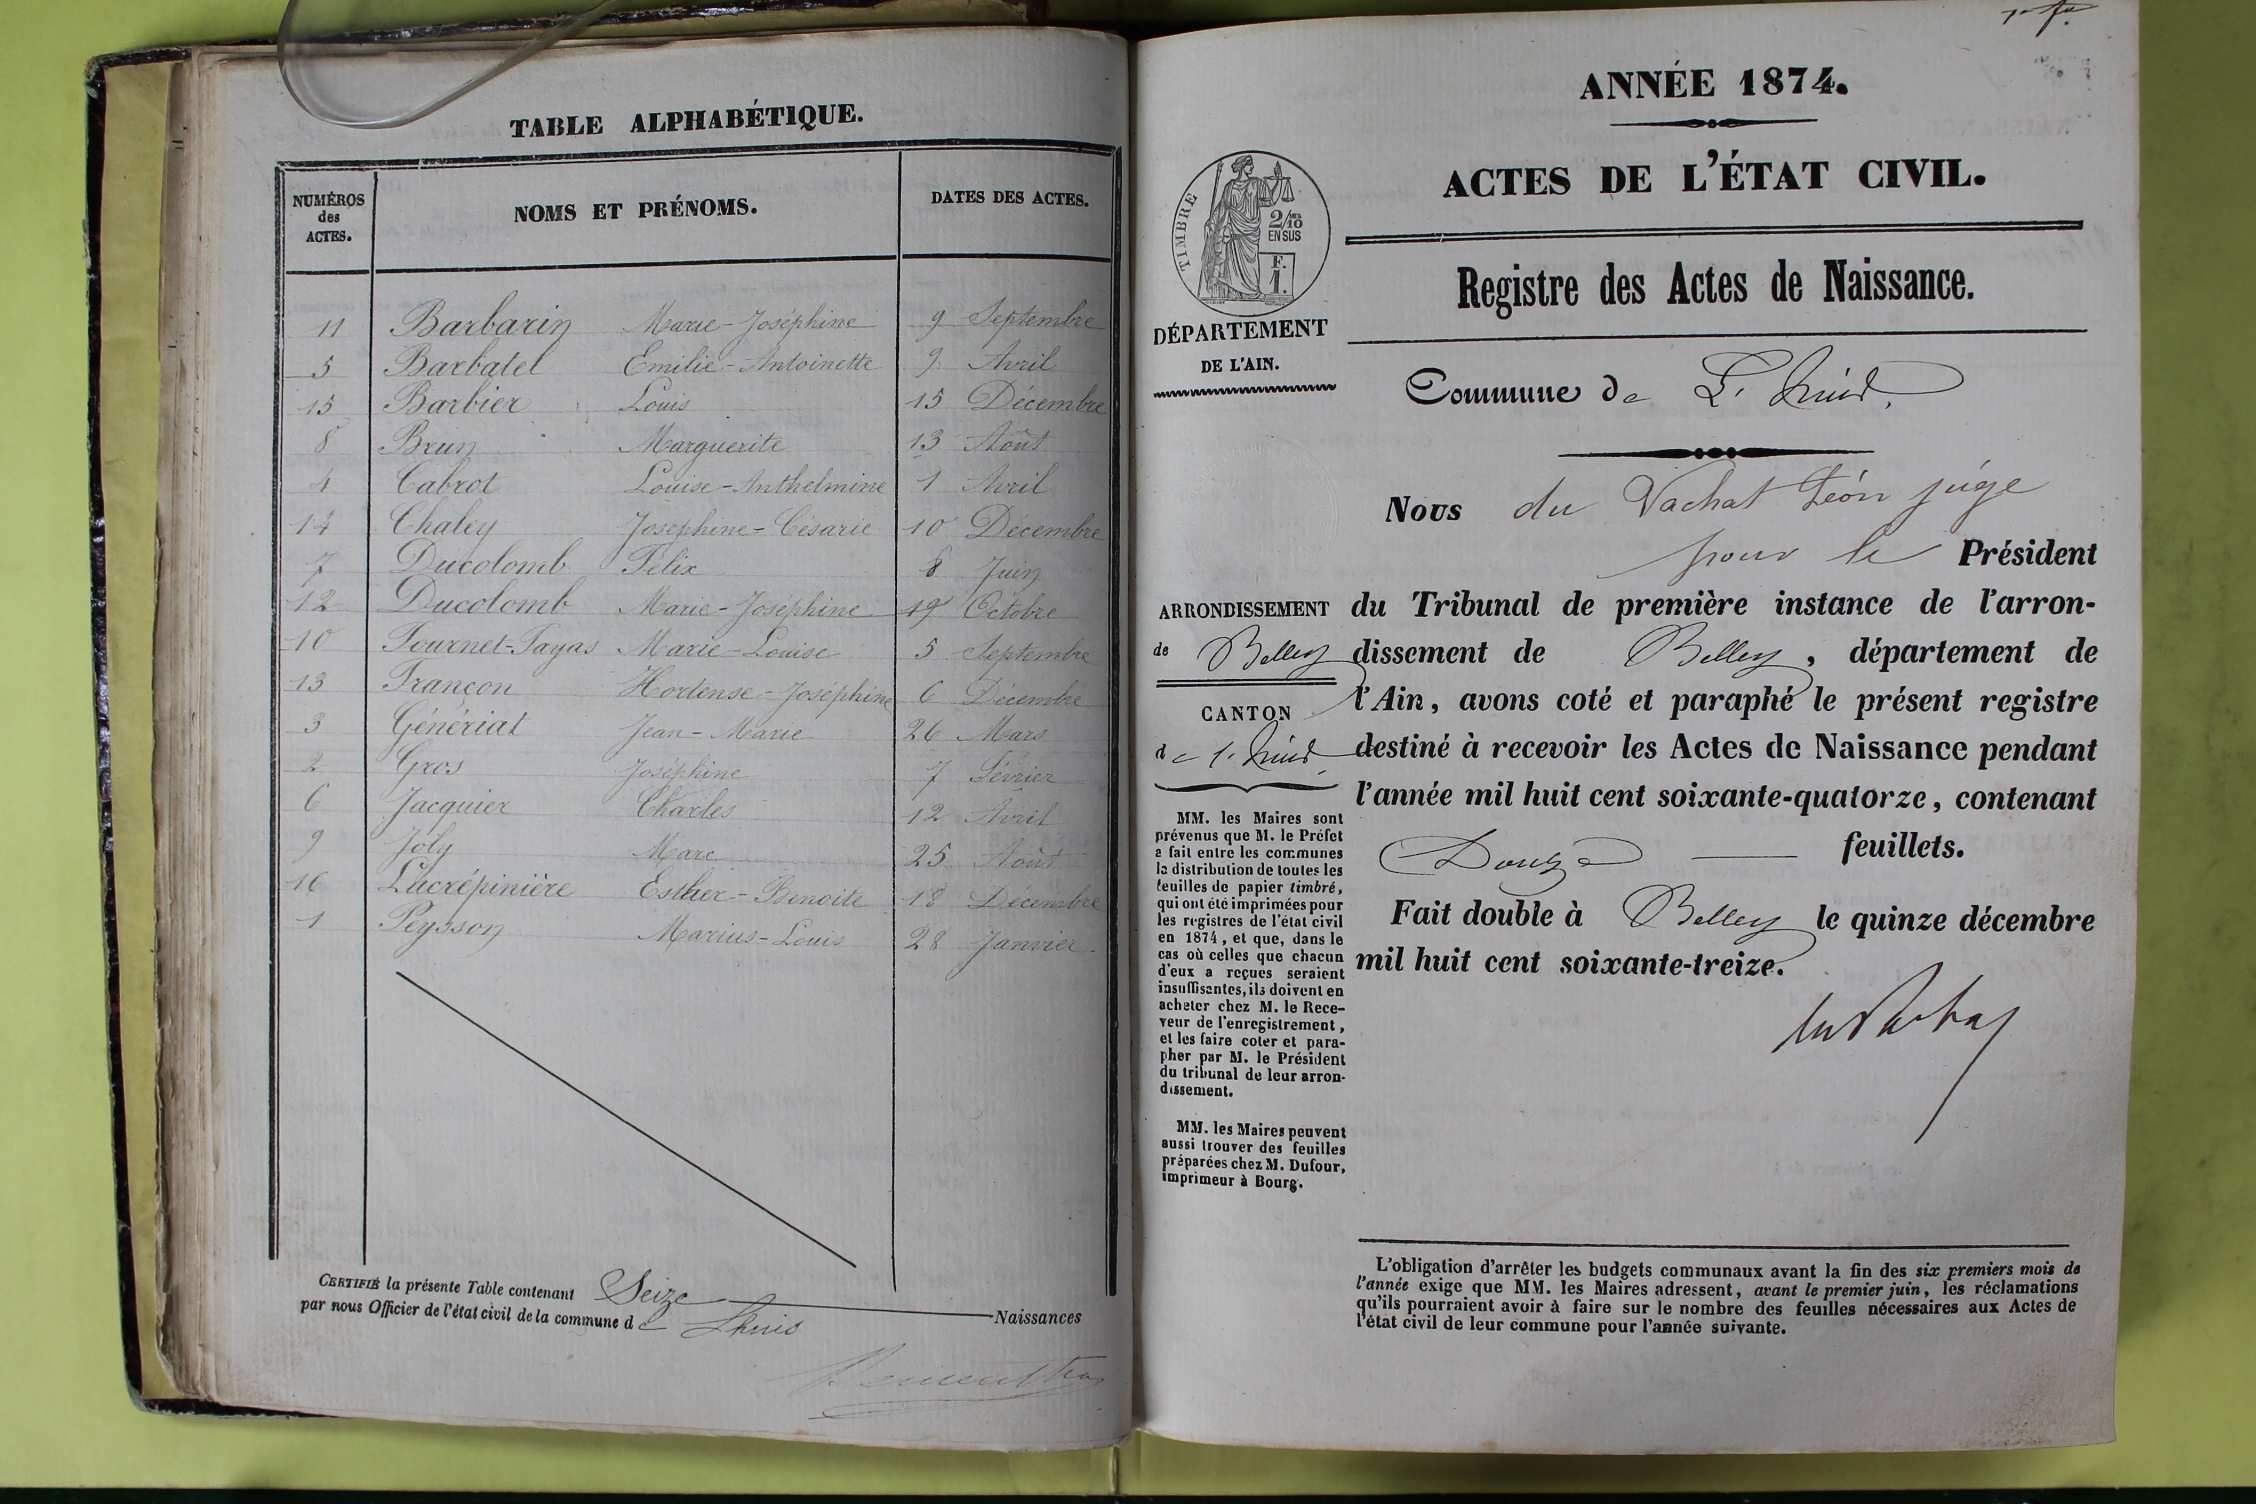 TABLE ALPHABÉTIQUE.
NUMÉROS des ACTES. NOMS ET PRÉNOMS. DATES DES ACTES.
11 Barbarin Marie-Joséphine 9 Septembre
5 Barbatel Emilie-Antoinette 9 Avril
15 Barbier Louis 15 Décembre
8 Brun Marguerite 13 Août
4 Cabrot Louise-Anthelmine 1 Avril
14 Chaley Joséphine-Césarie 10 Décembre
7 Ducolomb Félix 8 Juin
12 Ducolomb Marie-Joséphine 19 Octobre
10 Fournet-Fayas Marie-Louise 5 Septembre
13 Françon Hortense-Joséphine 6 Décembre
3 Génériat Jean-Marie 26 Mars
2 Gros Joséphine 7 Février
6 Jacquier Charles 12 Avril
9 Joly Marc 25 Août
16 Lacrépinière Esther-Benoite 18 Décembre
1 Peysson Marius-Louis 28 Janvier
CERTIFIÉ la présente Table contenant Seize Naissances
par nous Officier de l'état civil de la commune de Lhuis
ANNÉE 1874.
ACTES DE L'ÉTAT CIVIL.
TIMBRE
2/10
EN SUS
F.
1.
Registre des Actes de Naissance.
DÉPARTEMENT
DE L'AIN.
Commune de L'huis.
Nous du Vachat Léon juge
pour le Président
du Tribunal de première instance de l'arron-
dissement de Belley, département de
l'Ain, avons coté et paraphé le présent registre
destiné à recevoir les Actes de Naissance pendant
l'année mil huit cent soixante-quatorze, contenant
Douze feuillets.
Fait double à Belley le quinze décembre
mil huit cent soixante-treize.
ARRONDISSEMENT
de Belley
CANTON
de l'huis
MM. les Maires sont
prévenus que M. le Préfet
a fait entre les communes
la distribution de toutes les
feuilles de papier timbré,
qui ont été imprimées pour
les registres de l'état civil
en 1874, et que, dans le
cas où celles que chacun
d'eux a reçues seraient
insuffisantes, ils doivent en
acheter chez M. le Rece-
veur de l'enregistrement,
et les faire coter et para-
pher par M. le Président
du tribunal de leur arron-
dissement.
MM. les Maires peuvent
aussi trouver des feuilles
préparées chez M. Dufour,
imprimeur à Bourg.
L'obligation d'arrêter les budgets communaux avant la fin des six premiers mois de
l'année exige que MM. les Maires adressent, avant le premier juin, les réclamations
qu'ils pourraient avoir à faire sur le nombre des feuilles nécessaires aux Actes de
l'état civil de leur commune pour l'année suivante.